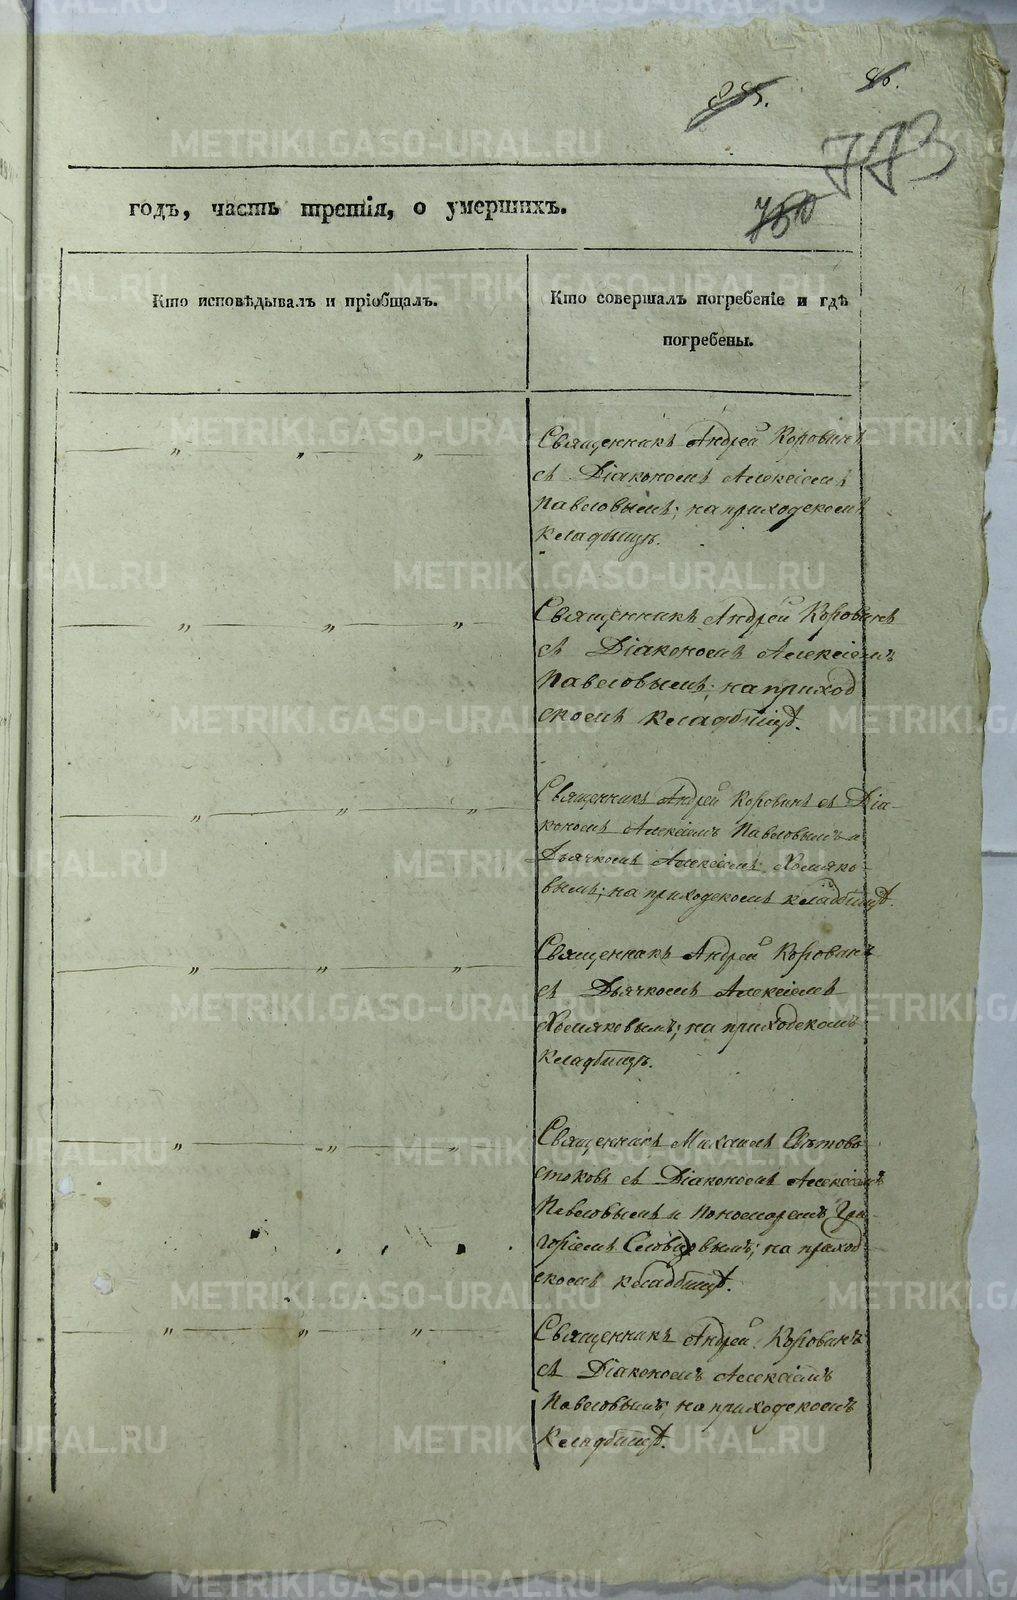 85.
773
годъ, часть третія, о умершихъ.
750
Кто исповѣдывалъ и пріобщалъ.
Кто совершалъ погребеніе и гдѣ
погребены.
Священникъ Андрей Коровинъ
съ Діакономъ Алексіемъ
Павловымъ; на приходскомъ
кладбищѣ.
Священникъ Андрей Коровинъ
съ Діакономъ Алексіемъ
Павловымъ; на приход
скомъ кладбищѣ.
Священникъ Андрей Коровинъ съ Діа-
кономъ Алексіемъ Павловымъ и
Дьячкомъ Алексіемъ Хомяко-
вымъ; на приходскомъ кладбищѣ.
Священникъ Андрей Коровинъ
съ Дьячкомъ Алексіемъ
Хомяковымъ; на приходскомъ
кладбищѣ.
Священникъ Михаилъ Свѣтов
стоковъ съ Діакономъ Алексіемъ
Павловымъ и Пономаремъ Гри-
горіемъ Словцовымъ; на приход
скомъ кладбищѣ.
Священникъ Андрей Коровинъ
съ Діакономъ Алексіемъ
Павловымъ, на приходскомъ
кладбищѣ.
METRIKI.GASO-URAL.RU